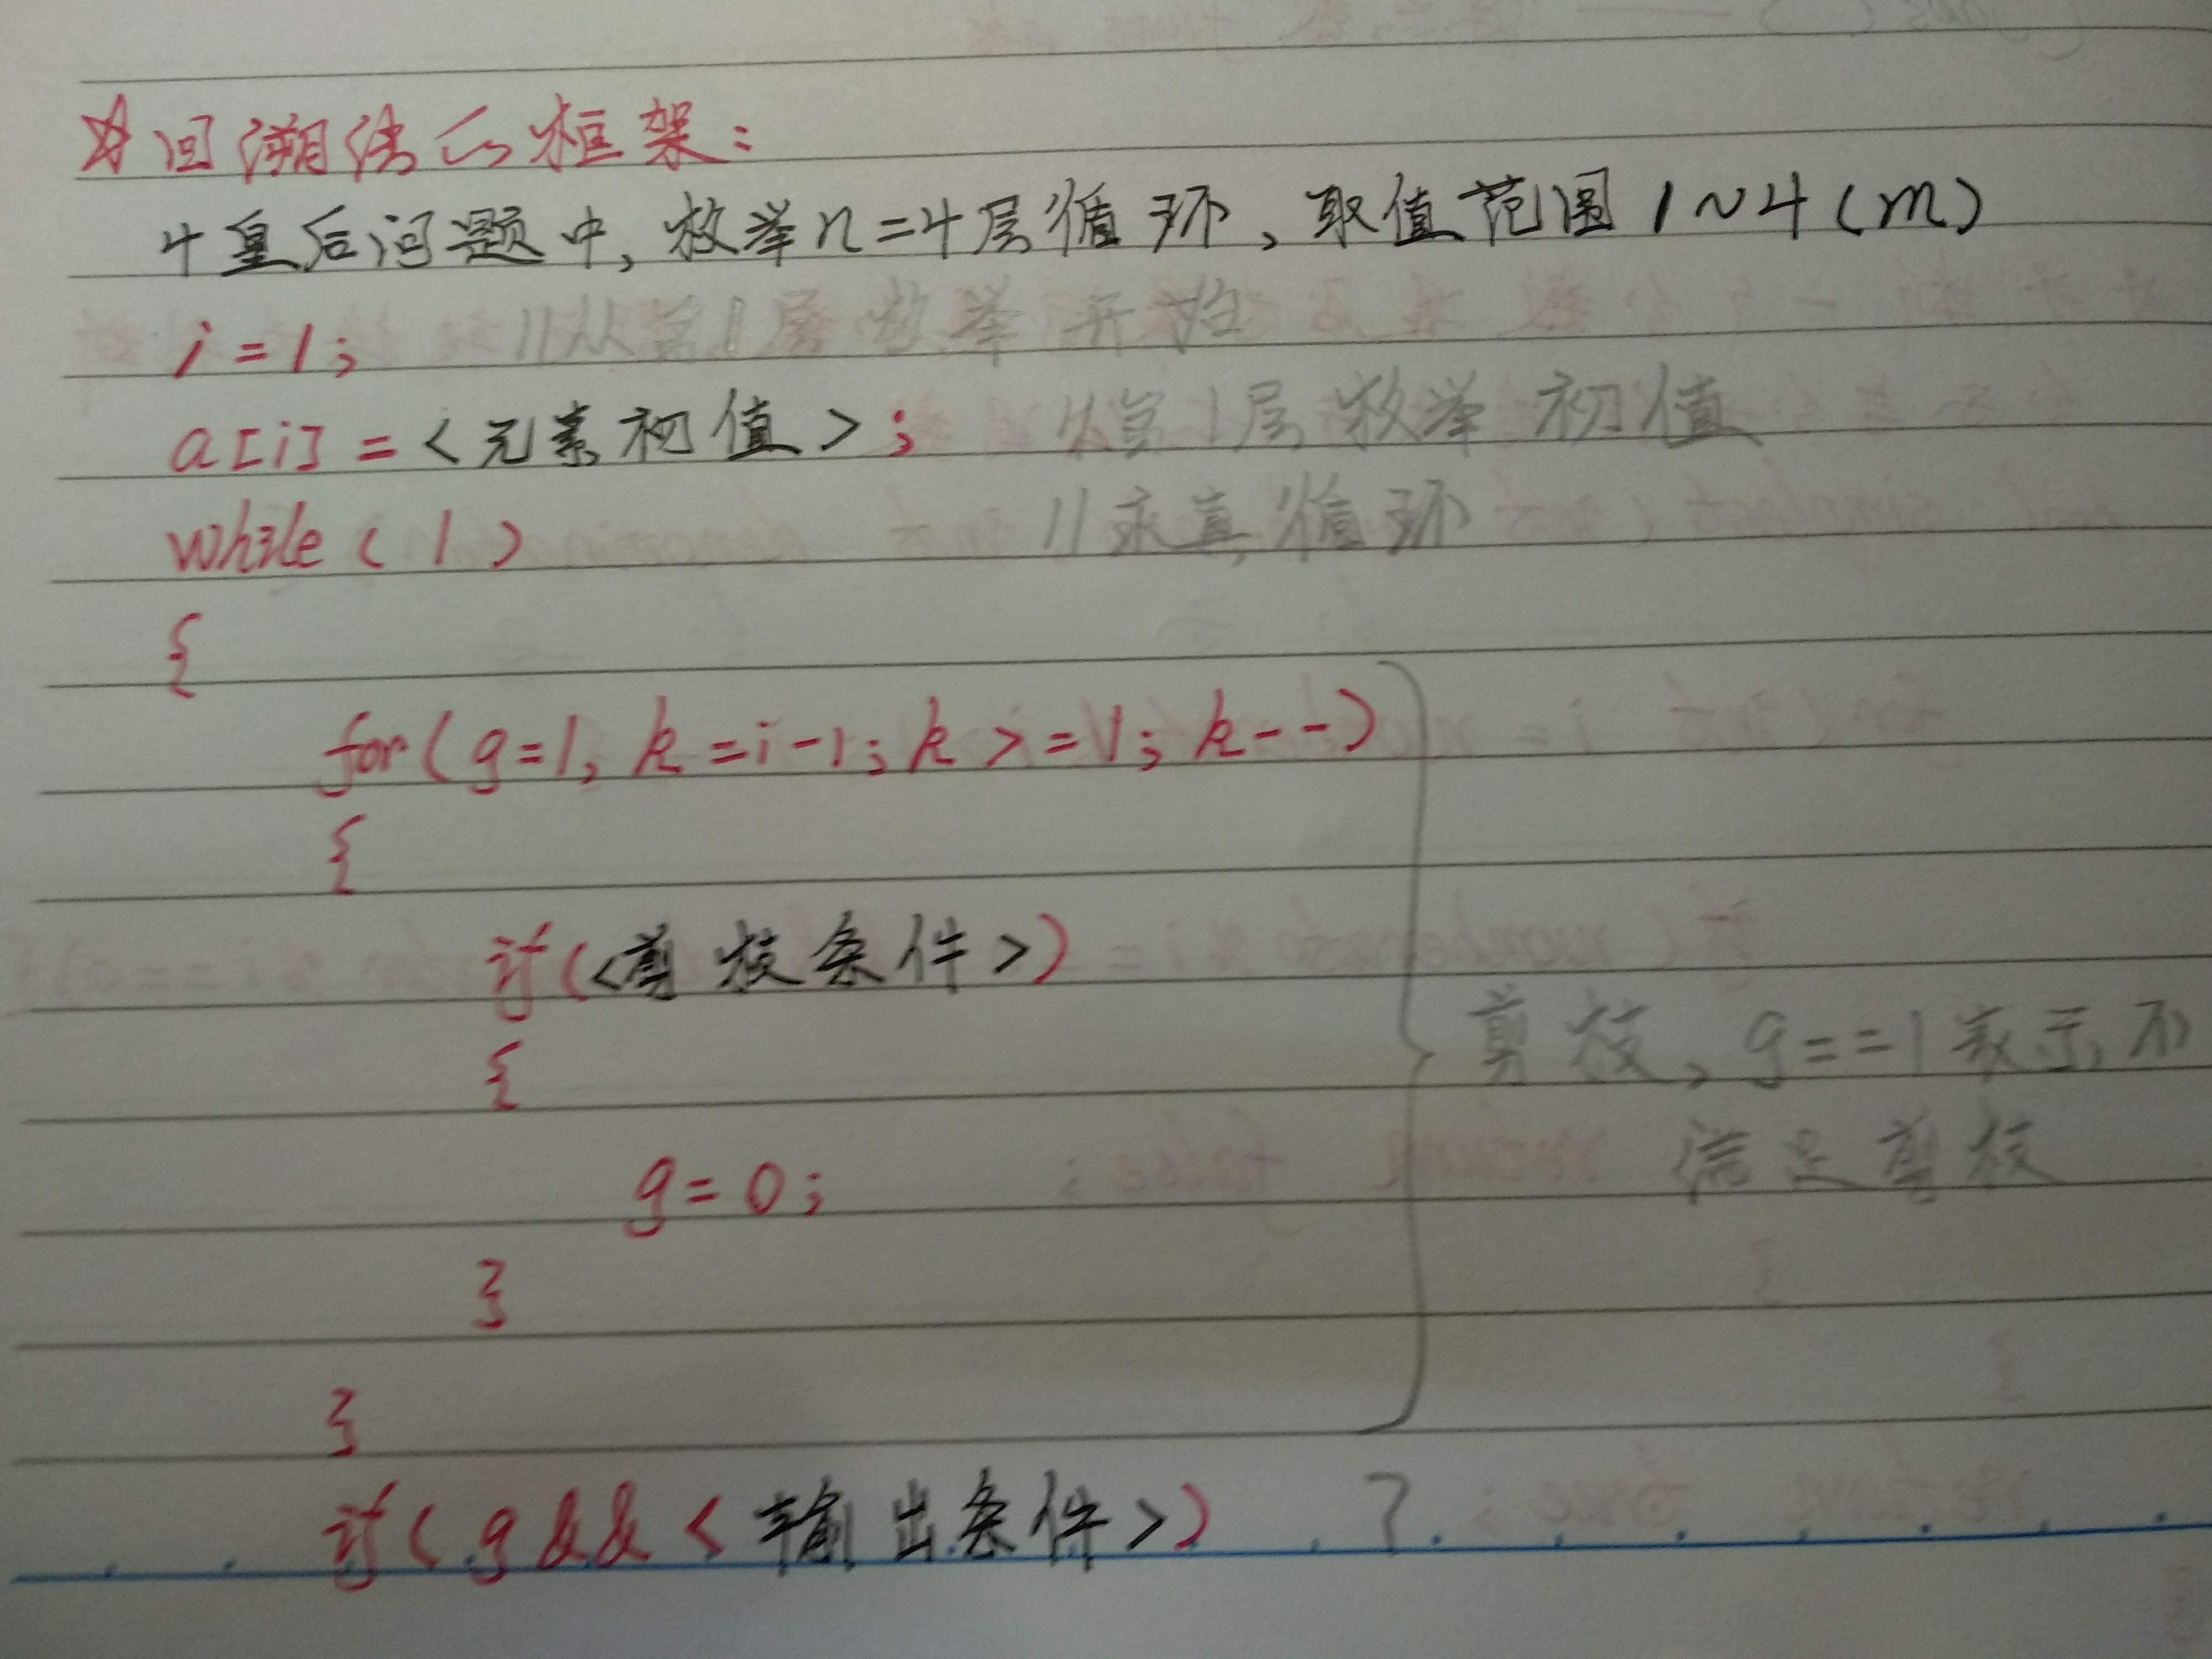 ☆回溯法的框架:
4皇后问题中,枚举n=4层循环、取值范围1~4(m)
i=1; //从第1层枚举开始
a[i]=<元素初值>; //第1层枚举初值
while(1) //永真循环
{
for(g=1, k=i-1; k>=1; k--)
{
if(<剪枝条件>)
{
剪枝、g==1表示不
满足剪枝
g=0;
}
}
if(g&&<输出条件>)